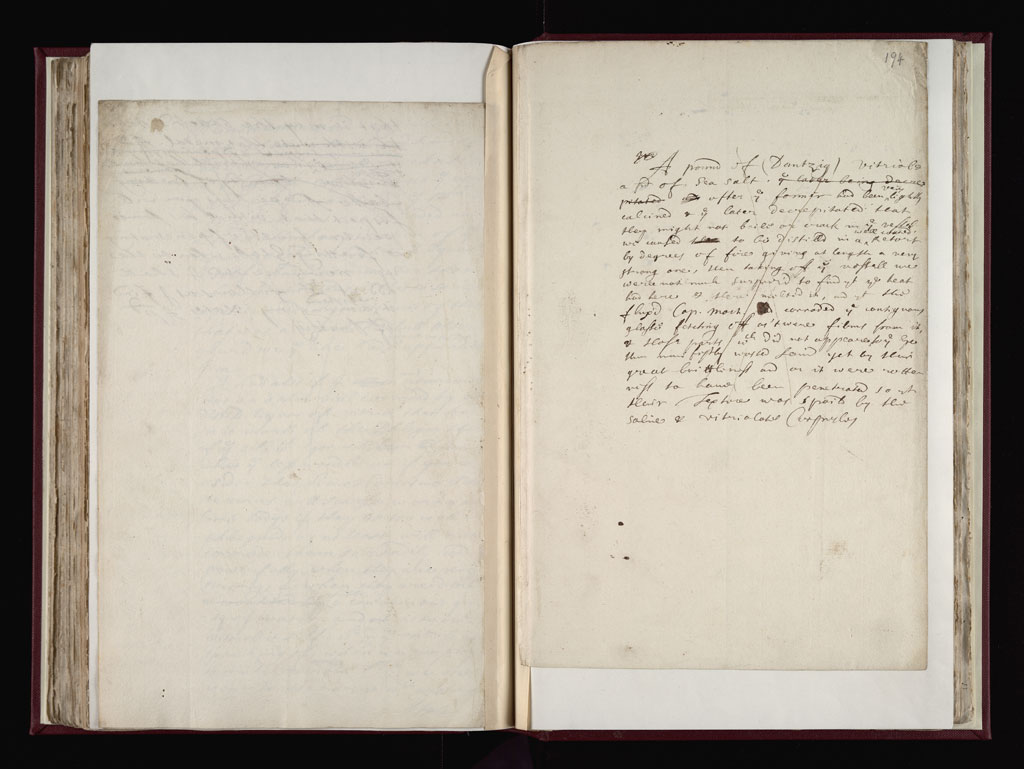 194
A pound of (Dantzig) vitriol &
a p̃ of Sea salt. yͤ later being decre
pitated after yͤ former had been very lightly
calcined & yͤ later decrepitated that
they might not boile or crack in yͤ vessel
we caused to be distilld in a well coated Retort
by degrees of fire giving at length a very
strong one, then taking off yͤ vessell we
were not much surprized to find yͭ yͤ heat
had here & there melted it, and yͭ the
flux'd Cap. Mort. had corroded yͤ contiguous
glasse fetching off as't were films from it,
& those parts wᶜʰ did not appeare to yͤ Eye
thus manifestly would found yet by their
great brittlenesse and as it were rotten
nesse to have been penetrated so yͭ
their Texture was spoild by the
saline & vitriolate Corpuscles